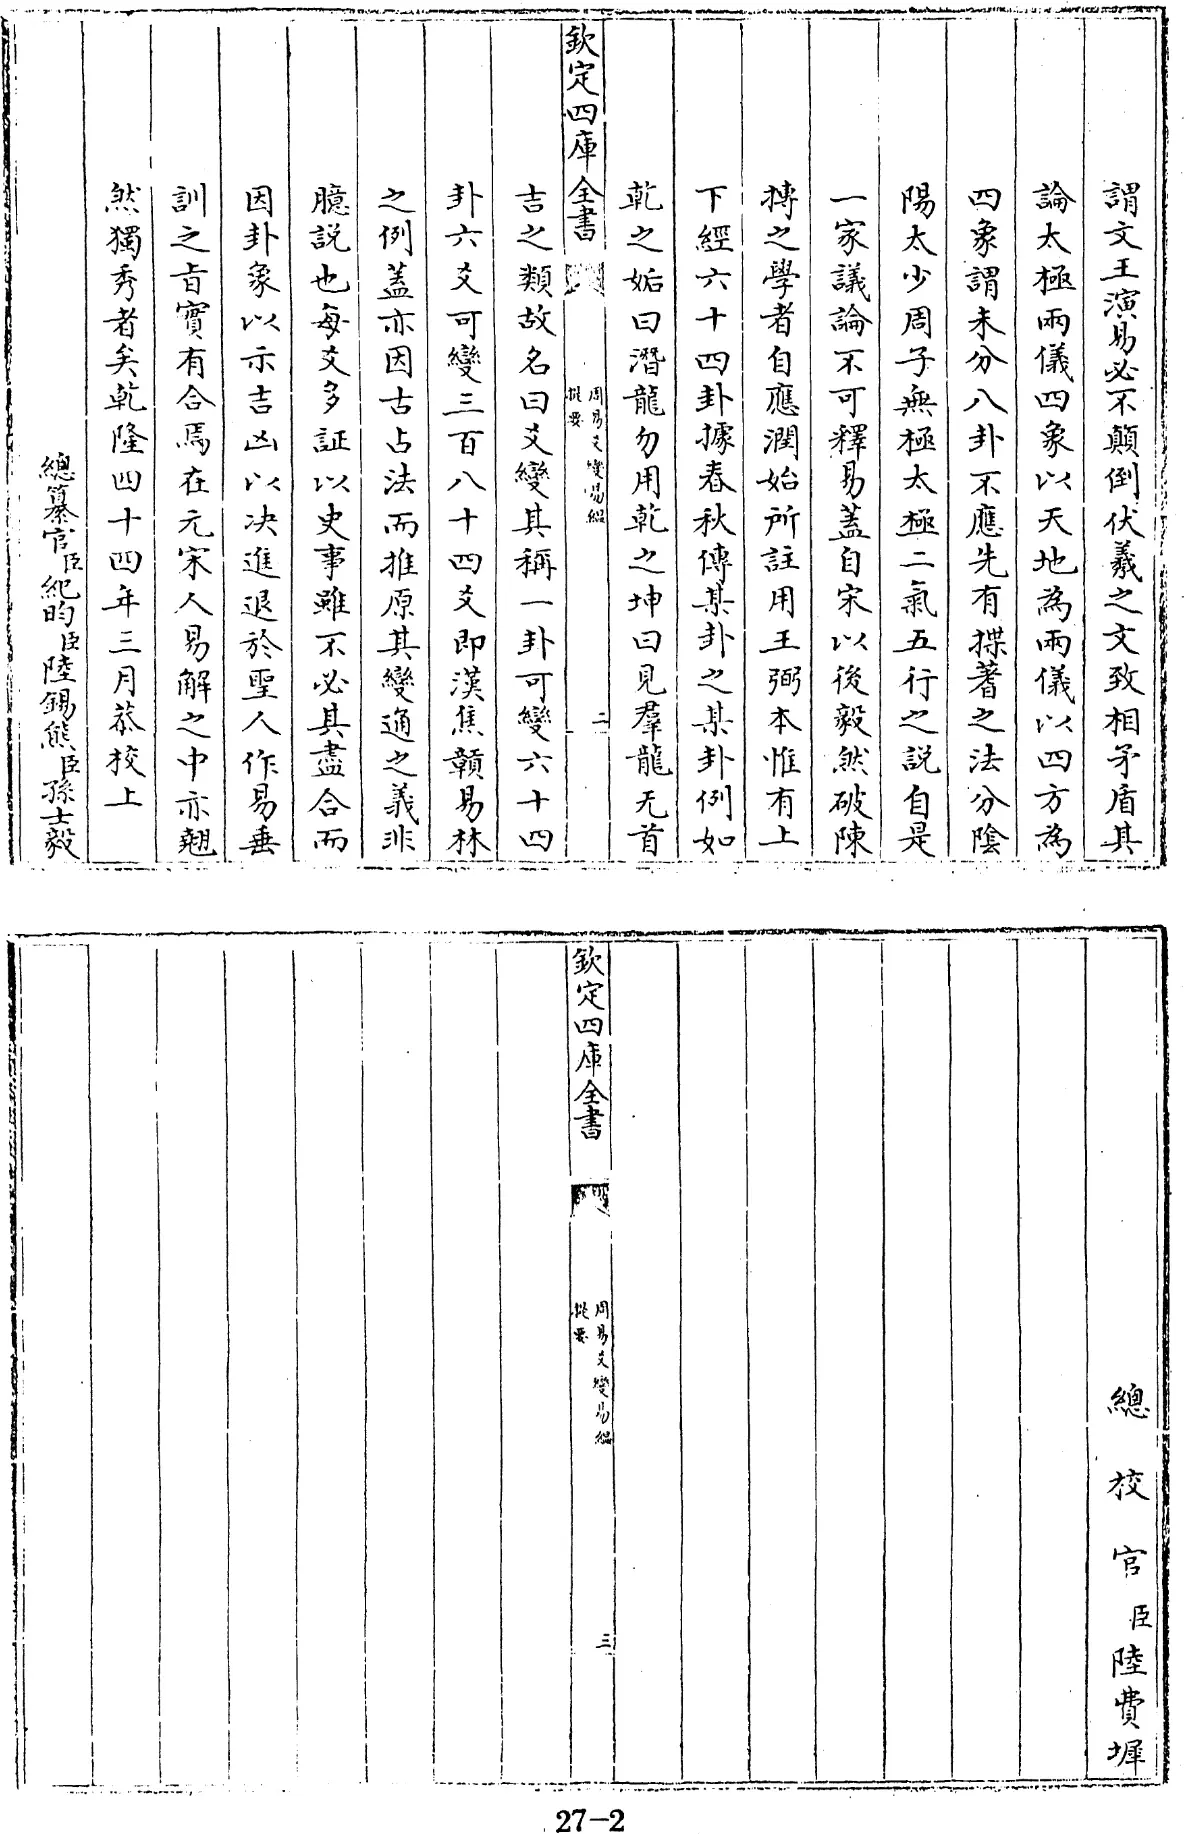 謂文王演易必不顛倒伏羲之文致相矛盾其
論太極兩儀四象以天地為兩儀以四方為
四象謂未分八卦不應先有揲蓍之法分陰
陽太少周子無極太極二氣五行之說自是
一家議論不可釋易蓋自宋以後毅然破陳
摶之學者自應潤始所註用王弼本惟有上
下經六十四卦據春秋傳某卦之某卦例如
乾之姤曰潛龍勿用乾之坤曰見羣龍无首
欽定四庫全書
周易爻變易縕
提要
二
吉之類故名曰爻變其稱一卦可變六十四
卦六爻可變三百八十四爻即漢焦贛易林
之例蓋亦因古占法而推原其變通之義非
臆説也每爻多証以史事雖不必其盡合而
因卦象以示吉凶以决進退於聖人作易垂
訓之旨實有合焉在元宋人易解之中亦翹
然獨秀者矣乾隆四十四年三月恭校上
總纂官臣紀昀臣陸錫熊臣孫士毅
總校官臣陸費墀
欽定四庫全書
周易爻變易縕
提要
三
27-2